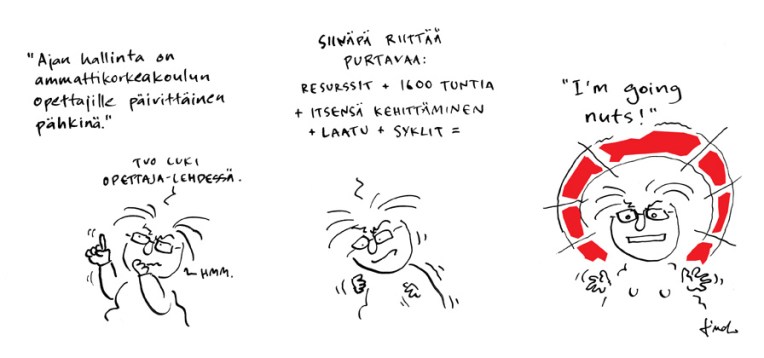 "Ajan hallinta on
ammattikorkeakoulun
opettajille päivittäinen
pähkinä."
TUO LUKI
OPETTAJA-LEHDESSÄ.
HMM.
SIINÄPÄ RIITTÄÄ
PURTAVAA:
RESURSSIT + 1600 TUNTIA
+ ITSENSÄ KEHITTÄMINEN
+ LAATU + SYKLIT =
"I'm going
nuts!"